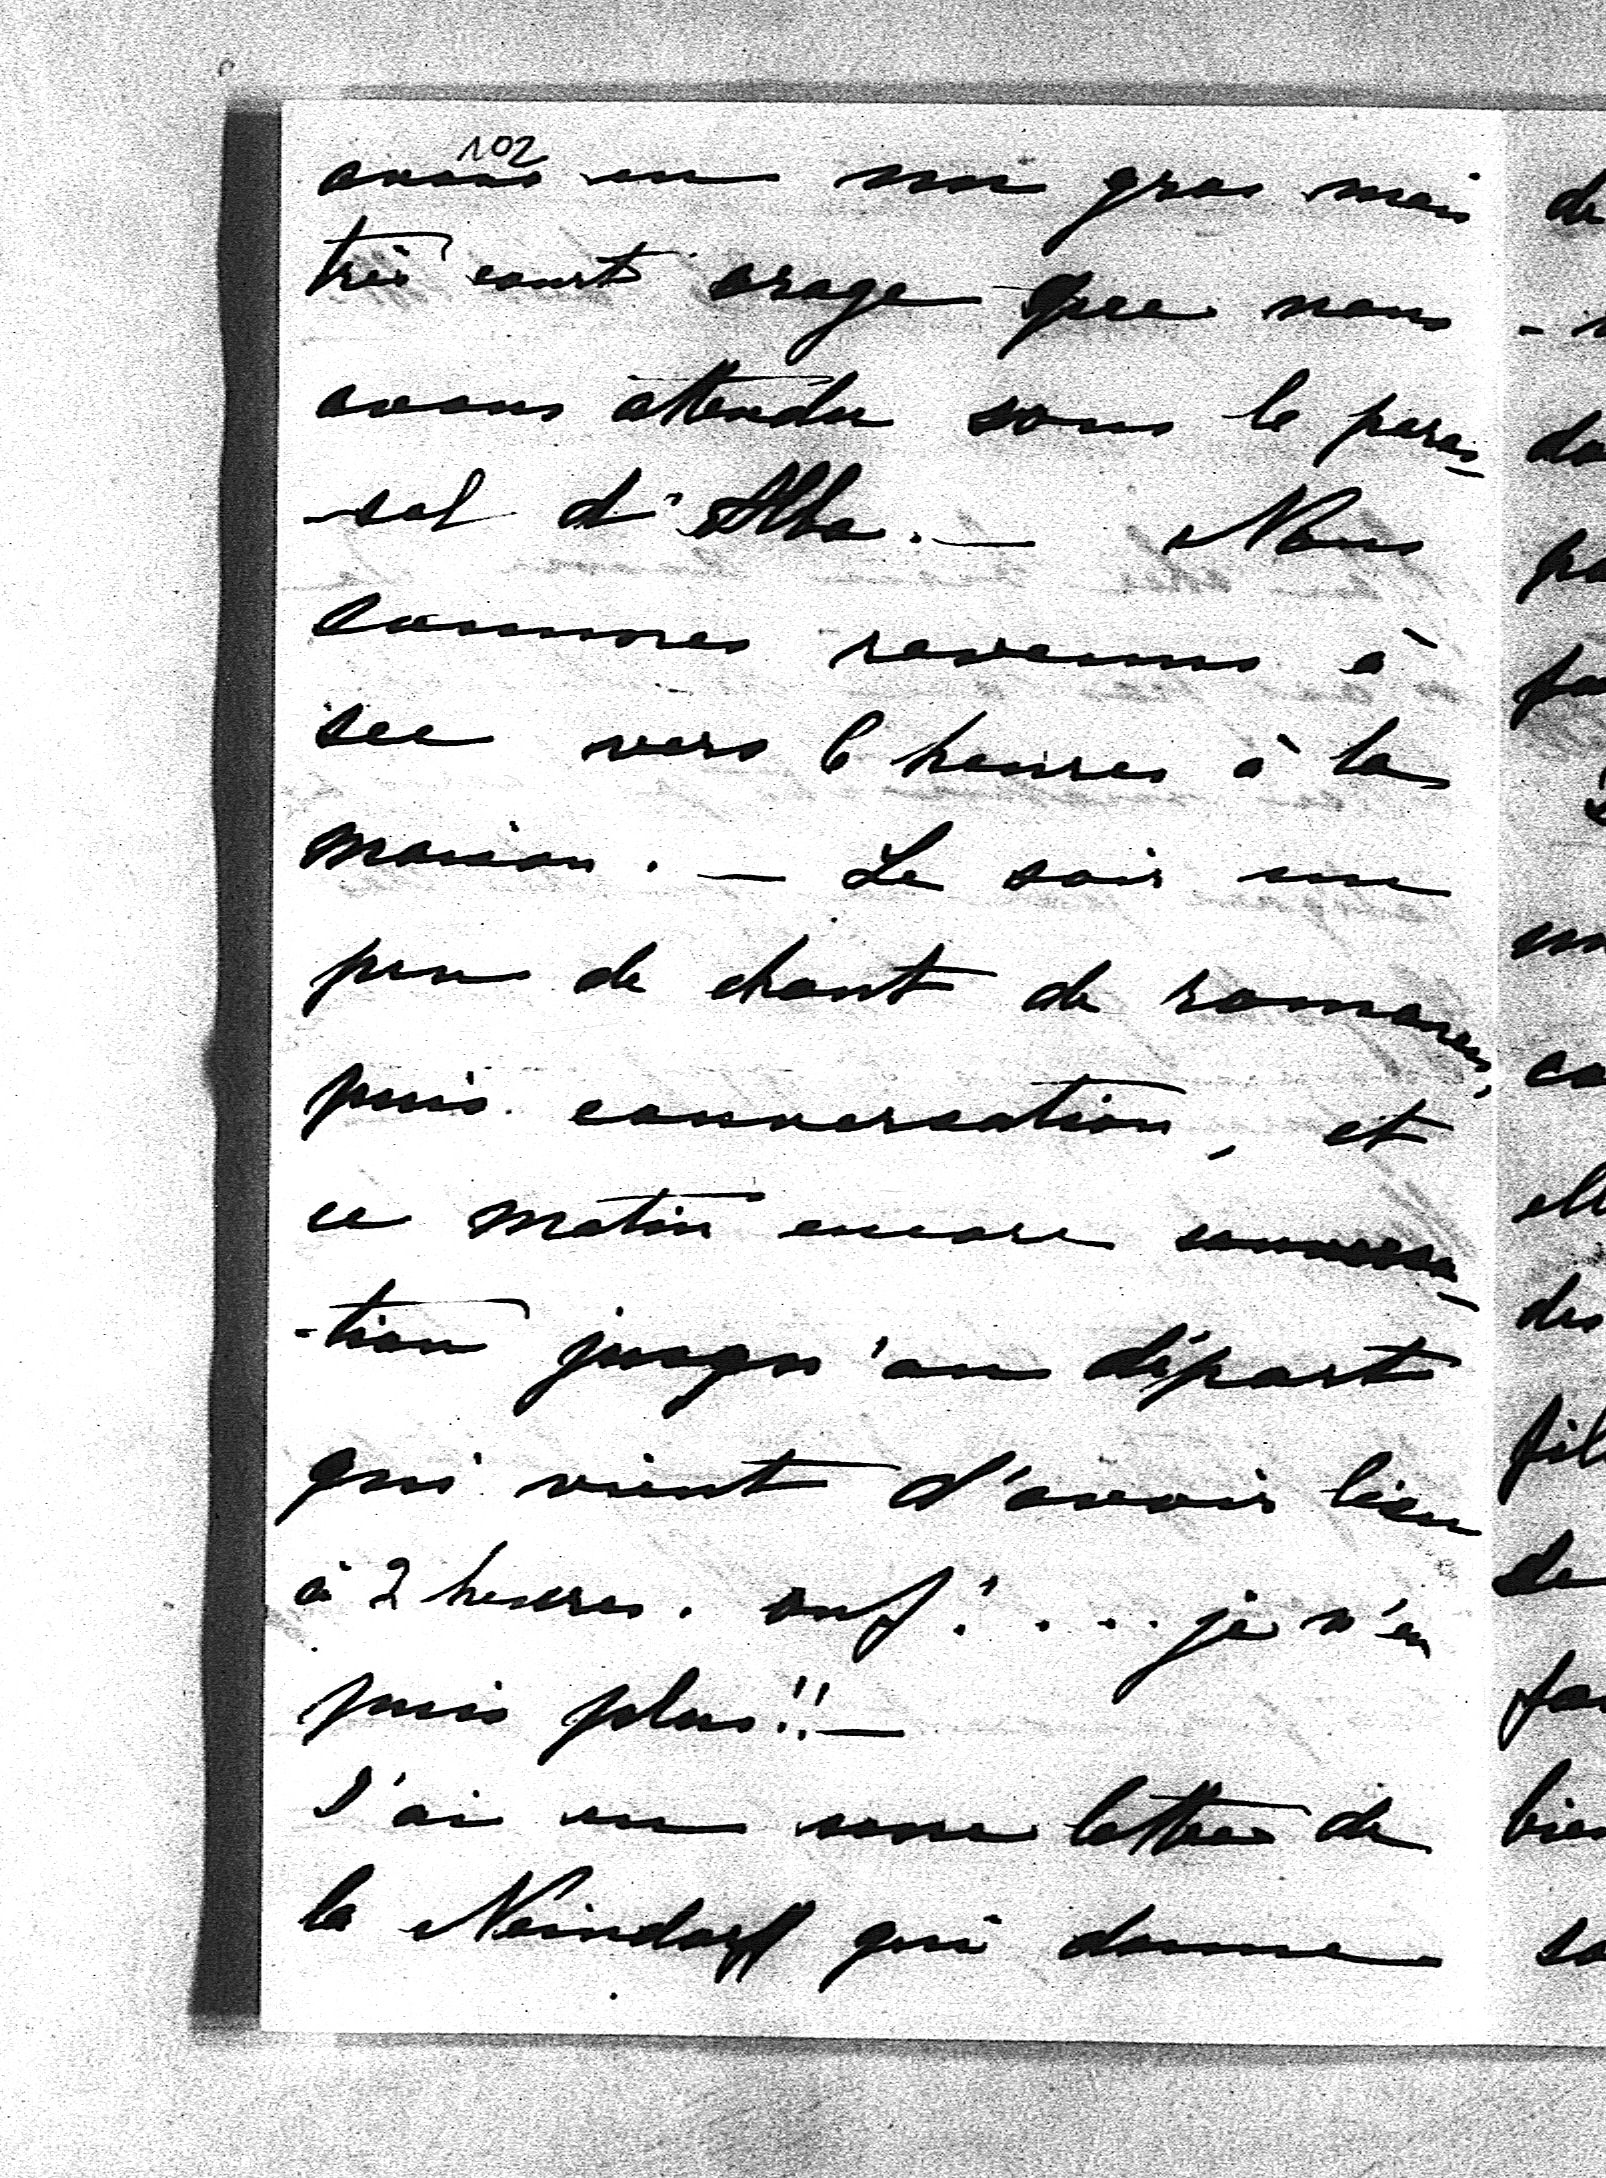 102
avons eu un gros mais
très court orage que nous
avons attendu sous le para-
-sol d'Alba. — Nous
sommes revenus à
sec vers 6 heures à la
maison. — Le soir un
peu de chant de romances,
puis conversation, et
ce matin encore conversa-
-tion jusqu'au départ
qui vient d'avoir lieu
à 2 heures. ouf! ... je n'en
puis plus!! —
J'ai eu une lettre de
la Neindorff qui donne